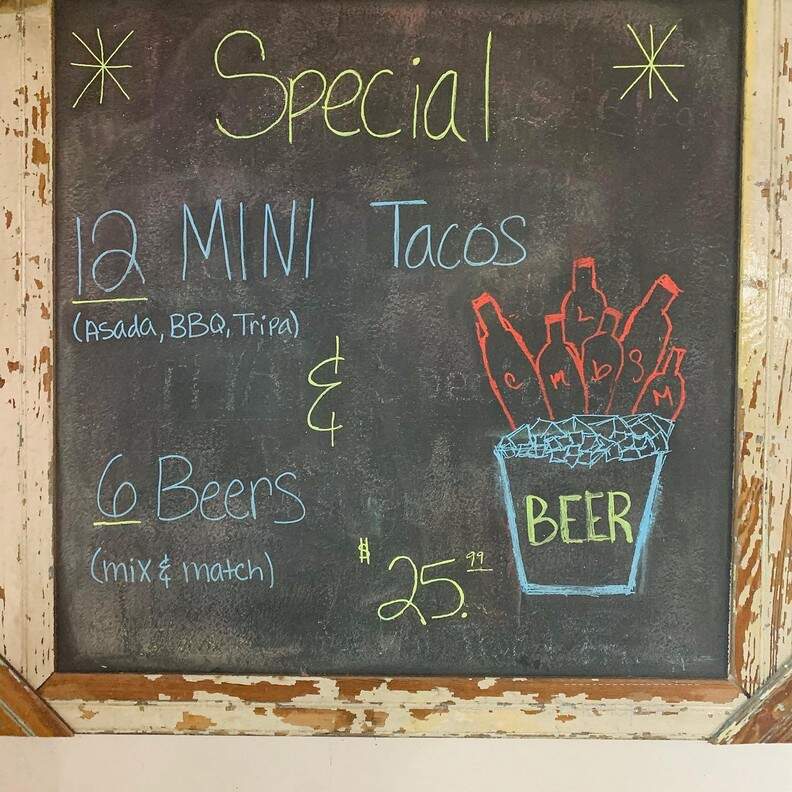 Special
12 MINI Tacos
(Asada, BBQ, Tripa)
&
6 Beers
(mix & match)
$25.99
L
C M B S M
BEER